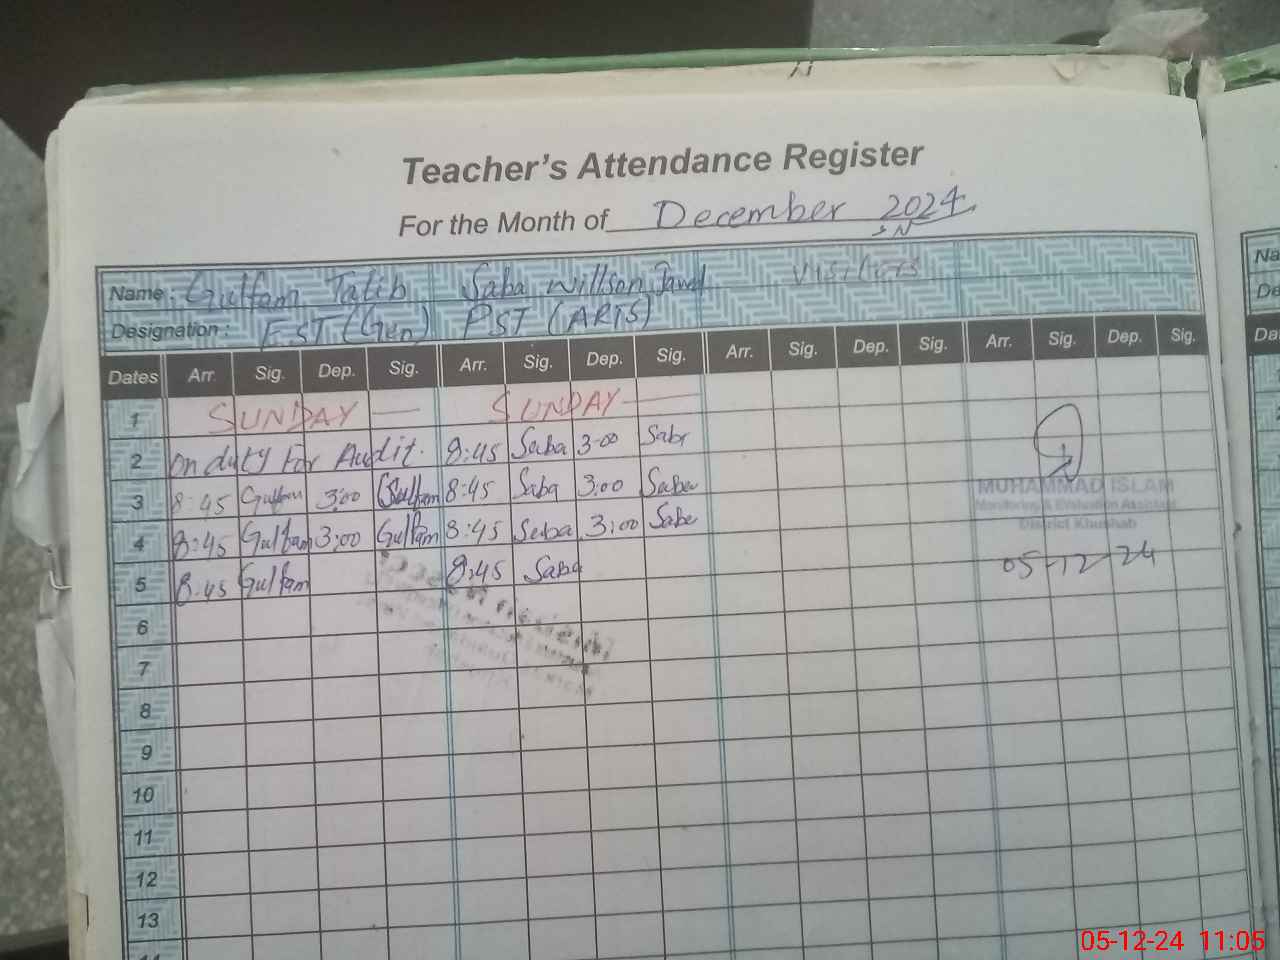 Teacher's Attendance Register
For the Month of December 2024
Name : Gulfam Talib Saba Willson Visitors
Designation : EST (Gen) PST (ARTS)
Dates Arr. Sig. Dep. Sig. Arr. Sig. Dep. Sig. Arr. Sig. Dep. Sig. Arr. Sig. Dep. Sig.
1 SUNDAY — SUNDAY —
2 on duty For Audit. 8:45 Saba 3:00 Saba
3 8:45 Gulfam 3:00 Gulfam 8:45 Saba 3:00 Saba
4 8:45 Gulfam 3:00 Gulfam 8:45 Saba 3:00 Saba
5 8:45 Gulfam 8:45 Saba
MUHAMMAD ISLAM
Monitoring & Evaluation Assistant
District Khushab
05-12-24
6
7
8
9
10
11
12
13
Na
De
Da
05-12-24 11:05